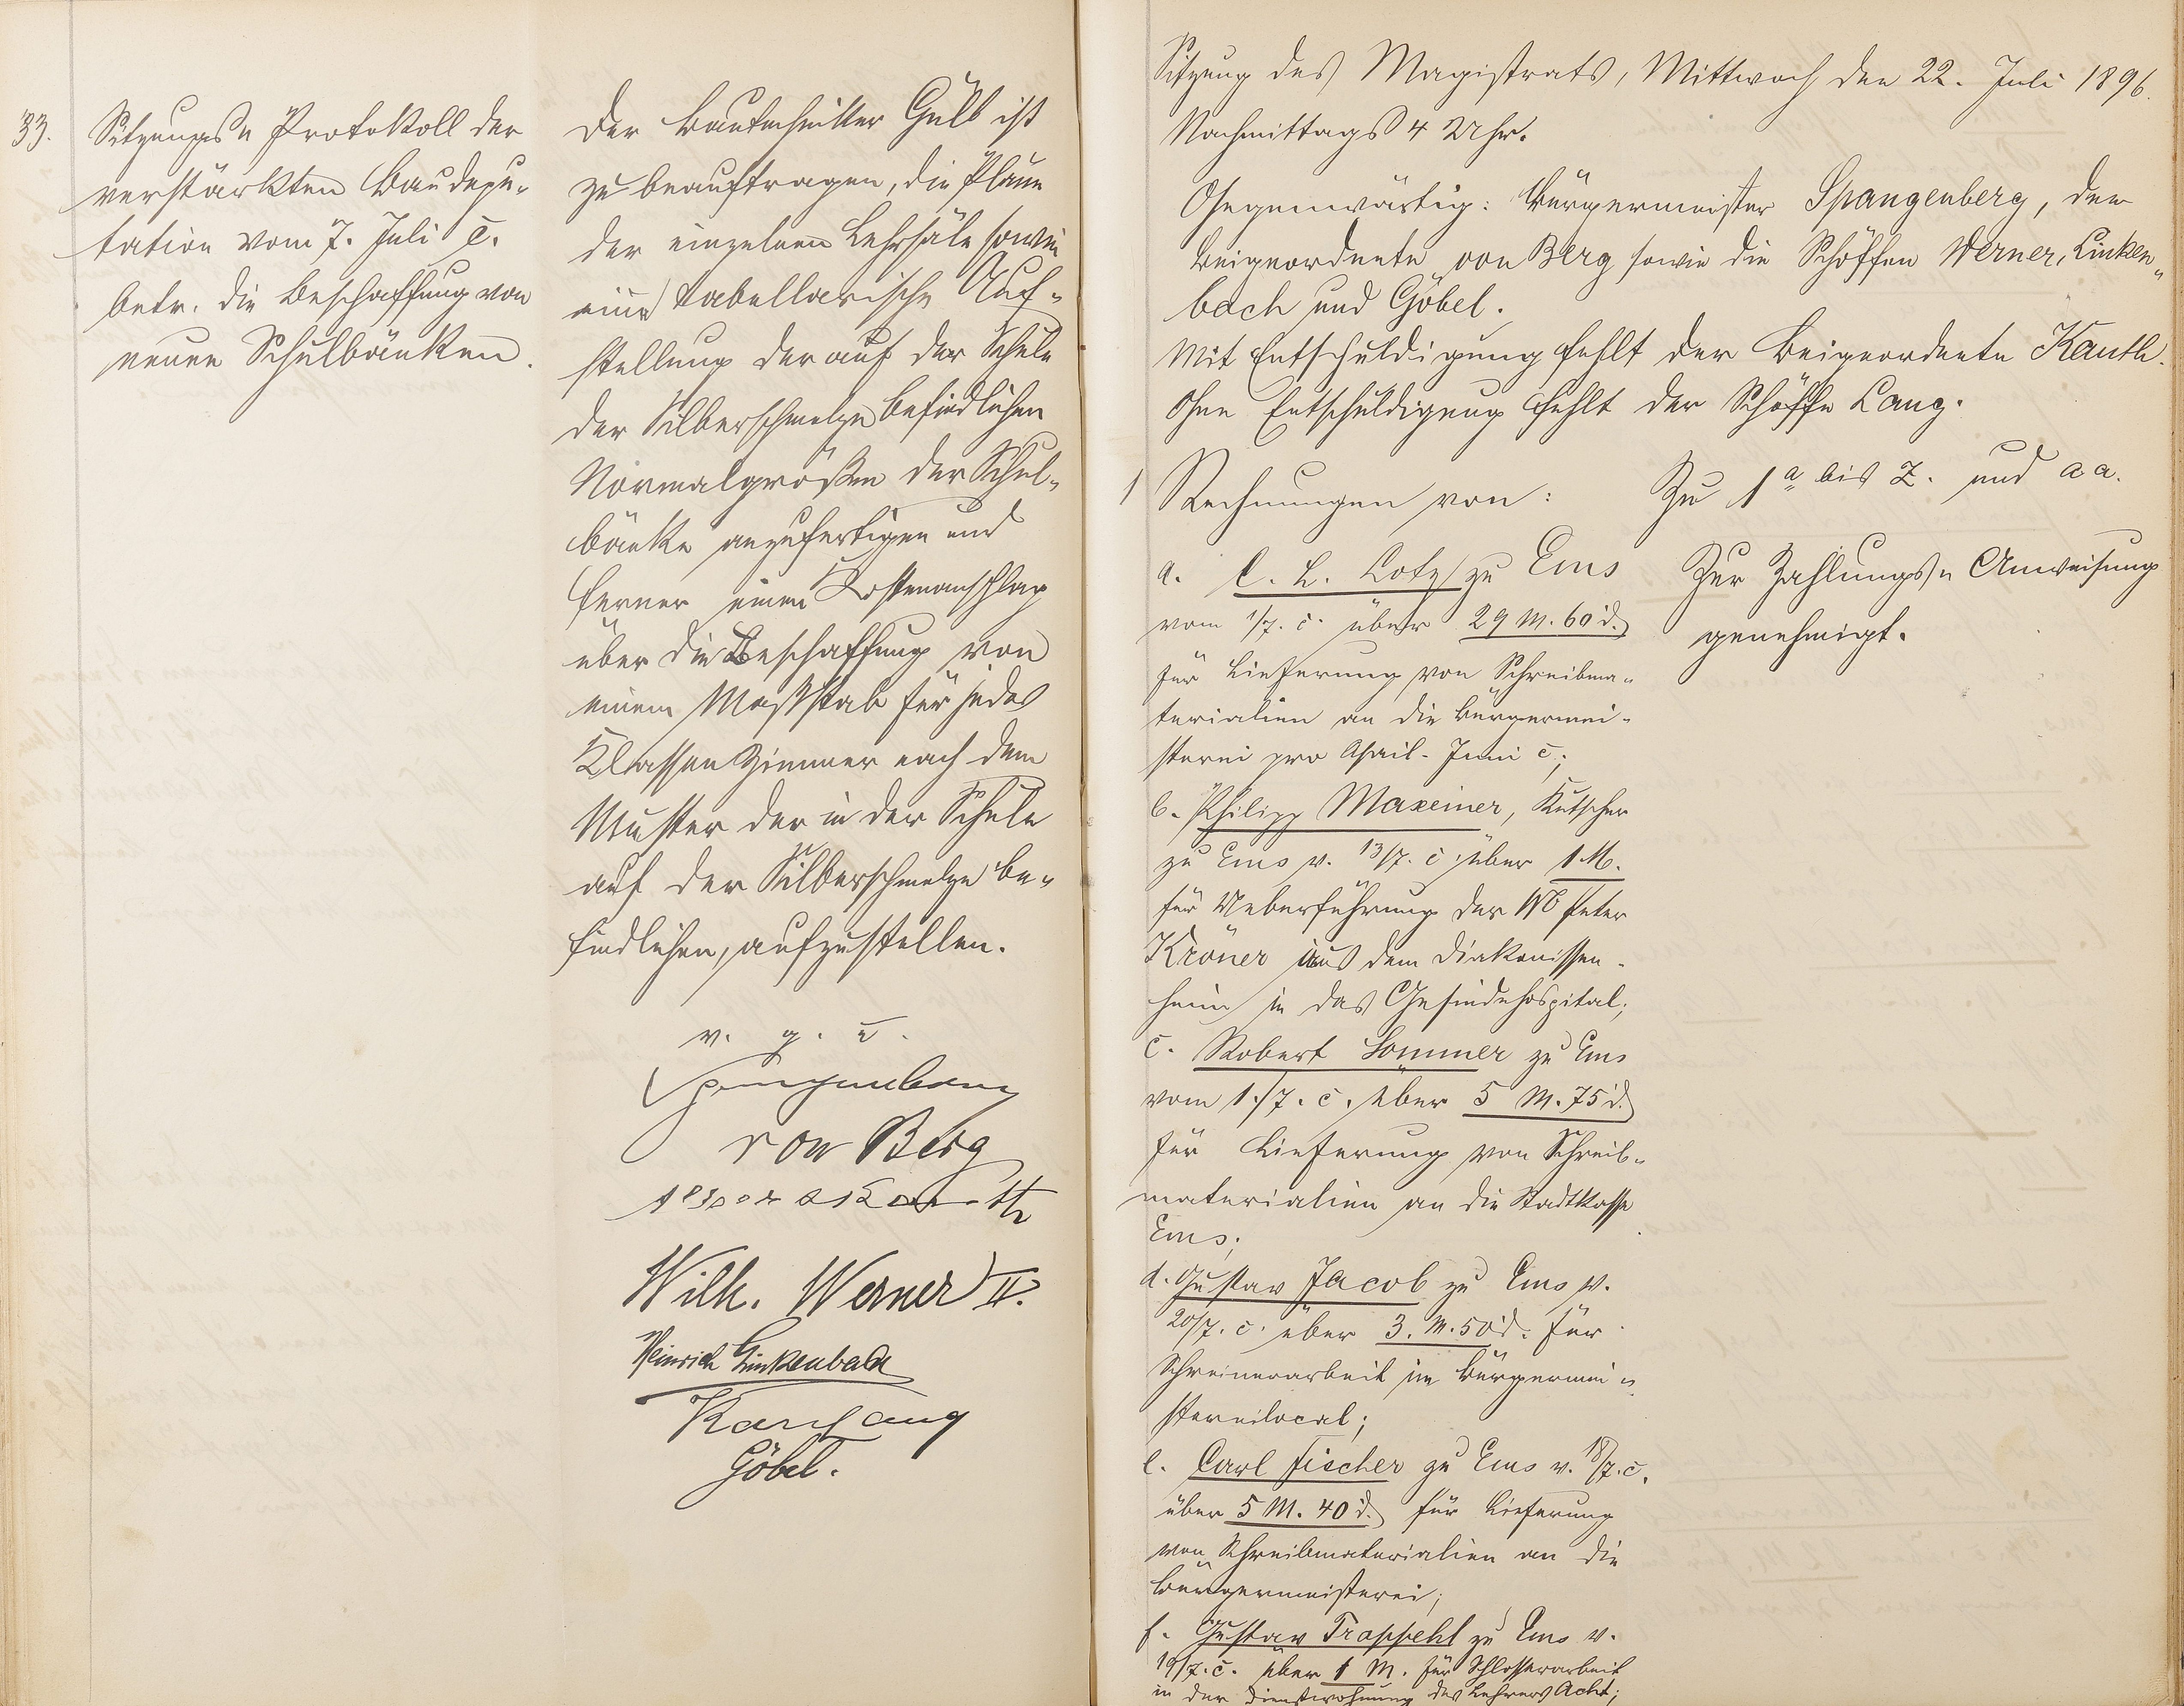 33.
Sitzungs-Protokoll der
verstärkten Baudepu-
tation vom 7. Juli c.
betr. die Beschaffung von
neuen Schulbänken.
Der Bautechniker Gülb ist
zu beauftragen, die Pläne
der einzelnen Lehrsäle sowie
eine tabellarische Auf-
stellung der auf der Schule
der Silberschmelze befindlichen
Normalgrößen der Schul-
bänke anzufertigen und
ferner einen Kostenanschlag
über die Beschaffung von
einem Maßstab für jedes
Klassenzimmer nach dem
Muster der in der Schule
auf der Silberschmelze be-
findlichen, aufzustellen.
v. g. u.
Spangenberg
von Berg
Kauth
Wilh. Werner II.
Heinrich Linkenbach
Karl Lang
Göbel.
Sitzung des Magistrats, Mittwoch den 22. Juli 1896.
Nachmittags 4 Uhr.
Gegenwärtig: Bürgermeister Spangenberg, der
Beigeordnete von Berg sowie die Schöffen Werner, Linken-
bach und Göbel.
Mit Entschuldigung fehlt der Beigeordnete Kauth.
Ohne Entschuldigung fehlt der Schöffe Lang.
1 Rechnungen von:
a. C. L. Lotz zu Ems
vom 1/7. c. über 29 M. 60 d.
für Lieferung von Schreibma-
terialien an die Bürgermei-
sterei pro April-Juni c;
b. Philipp Maxeiner, Kutscher
zu Ems v. 13/7. c. über 1 M.
für Ueberführung der Wb Peter
Kröner aus dem Diakonissen-
heim in das Gesindehospital;
c. Robert Sommer zu Ems
vom 1./7. c. über 5 M. 75 d.
für Lieferung von Schreib-
materialien an die Stadtkasse
Ems;
d. Gustav Jacob zu Ems v.
20/7. c. über 3. M. 50 d. für
Schreinerarbeit im Bürgermei-
stereilocal;
e. Carl Fischer zu Ems v. 18/7. c.
über 5 M. 40 d. für Lieferung
von Schreibmaterialien an die
Bürgermeisterei;
f. Gustav Trappehl zu Ems v.
19/7. c. über 1 M. für Schlosserarbeit
in der Dienstwohnung des Lehrers Acht;
Zu 1 a bis z. und aa.
Zur Zahlungs-Anweisung
genehmigt.